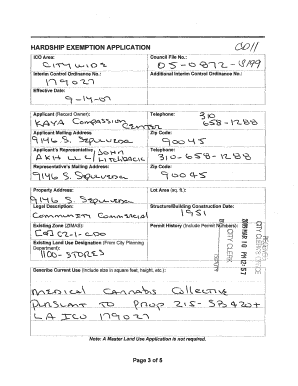 CD11
HARDSHIP EXEMPTION APPLICATION
ICO Area: Council File No.:
CITYWIDE 05-0872-S199
Interim Control Ordinance No.: Additional Interim Control Ordinance No.:
179027
Effective Date:
9-14-07
Applicant (Record Owner): Telephone: 310
KAYA COMPASSION CENTER 658-1288
Applicant Mailing Address: Zip Code:
9146 S. Sepulveda 90045
Applicant's Representative: Telephone:
AKH LLC/ JOHN 310-658-1288
Representative's Mailing Address: Zip Code:
9146 S. Sepulveda 90045
Property Address: Lot Area (sq. ft.):
9146 S. Sepulveda
Legal Description: Structure/Building Construction Date:
Community Commercial 1951
Existing Zone (ZIMAS): Permit History (Include Permit Numbers):
Existing Land Use Designation (From City Planning
Department):
1100-STORES
CITY CLERK'S OFFICE
2008 MAR 10 PM 12:57
CITY CLERK
BY
DEPUTY
Describe Current Use (Include size in square feet, height, etc.):
Medical Cannabis Collective
PURSUANT TO PROP 215-SB420+
LA ICO 179027
Note: A Master Land Use Application is not required.
Page 3 of 5